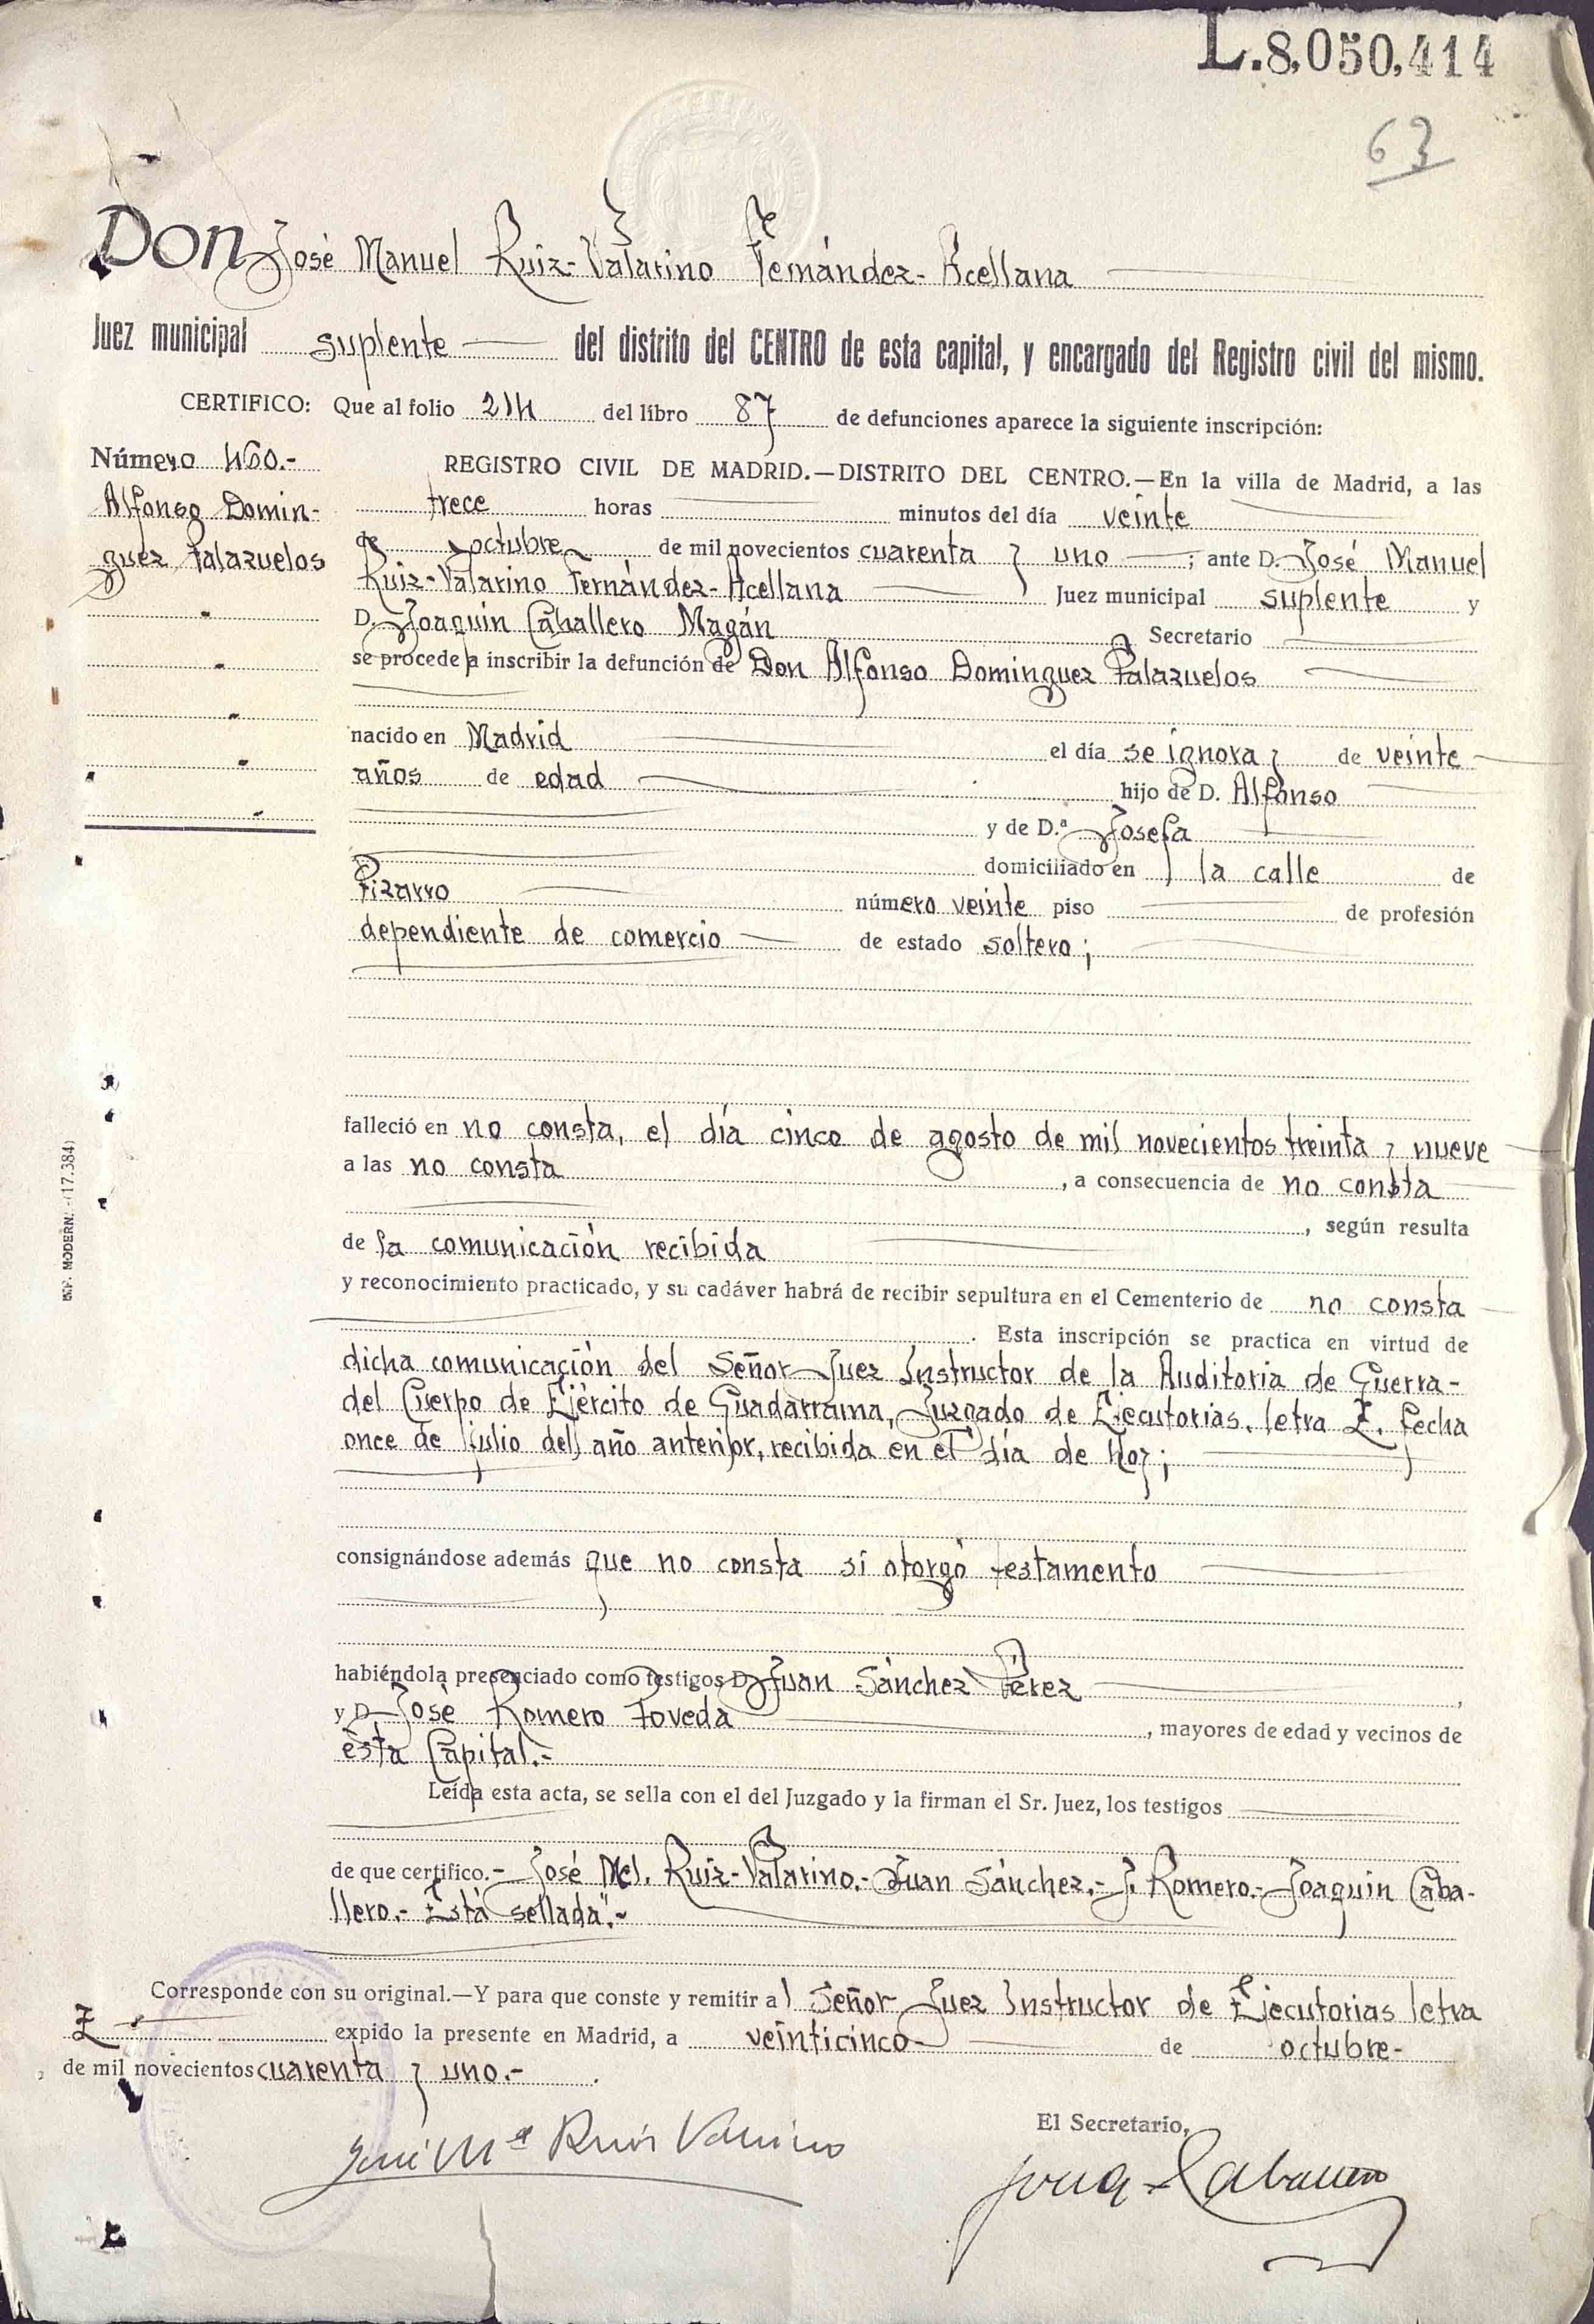 L.8,050,414
63
Don José Manuel Ruiz-Valarino Fernández-Acellana
Juez municipal suplente del distrito del CENTRO de esta capital, y encargado del Registro civil del mismo.
CERTIFICO: Que al folio 214 del libro 87 de defunciones aparece la siguiente inscripción:
Número 460.-
Alfonso Domin-
guez Palazuelos
REGISTRO CIVIL DE MADRID.—DISTRITO DEL CENTRO.—En la villa de Madrid, a las
trece horas minutos del día veinte
de octubre de mil novecientos cuarenta y uno ; ante D. José Manuel
Ruiz-Valarino Fernández-Acellana Juez municipal suplente y
D. Joaquín Caballero Magán Secretario
se procede a inscribir la defunción de Don Alfonso Dominguez Palazuelos
nacido en Madrid el día se ignora y de veinte
años de edad hijo de D. Alfonso
y de D.ª Josefa
domiciliado en la calle de
Pizarro número veinte piso de profesión
dependiente de comercio de estado soltero;
falleció en no consta, el día cinco de agosto de mil novecientos treinta y nueve
a las no consta , a consecuencia de no consta
, según resulta
de la comunicación recibida
y reconocimiento practicado, y su cadáver habrá de recibir sepultura en el Cementerio de no consta
. Esta inscripción se practica en virtud de
dicha comunicación del Señor Juez Instructor de la Auditoria de Guerra-
del Cuerpo de Ejército de Guadarrama, Juzgado de Ejecutorias, letra Z. fecha
once de julio del año anterior, recibida en el día de hoy;
consignándose además que no consta si otorgó testamento
habiéndola presenciado como testigos D. Juan Sánchez Pérez ,
y D. José Romero Poveda , mayores de edad y vecinos de
ésta Capital.-
Leída esta acta, se sella con el del Juzgado y la firman el Sr. Juez, los testigos
de que certifico.- José Ml. Ruiz-Valarino.- Juan Sánchez.- J. Romero.- Joaquin Caba-
llero.- Está sellada".-
Corresponde con su original.—Y para que conste y remitir al Señor Juez Instructor de Ejecutorias letra
Z expido la presente en Madrid, a veinticinco de octubre-
de mil novecientos cuarenta y uno.-
El Secretario,
José Mª Ruiz Valarino
Joaq Caballero
MODERN.-(17.384)